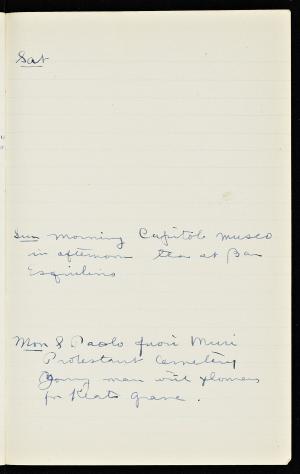 Sat
Sun morning Capitole museo
in afternoon tea at Bar
Esquilino
Mon S Paolo fuori Muri
Protestant Cemetery
Young man with flowers
for Keats grave.